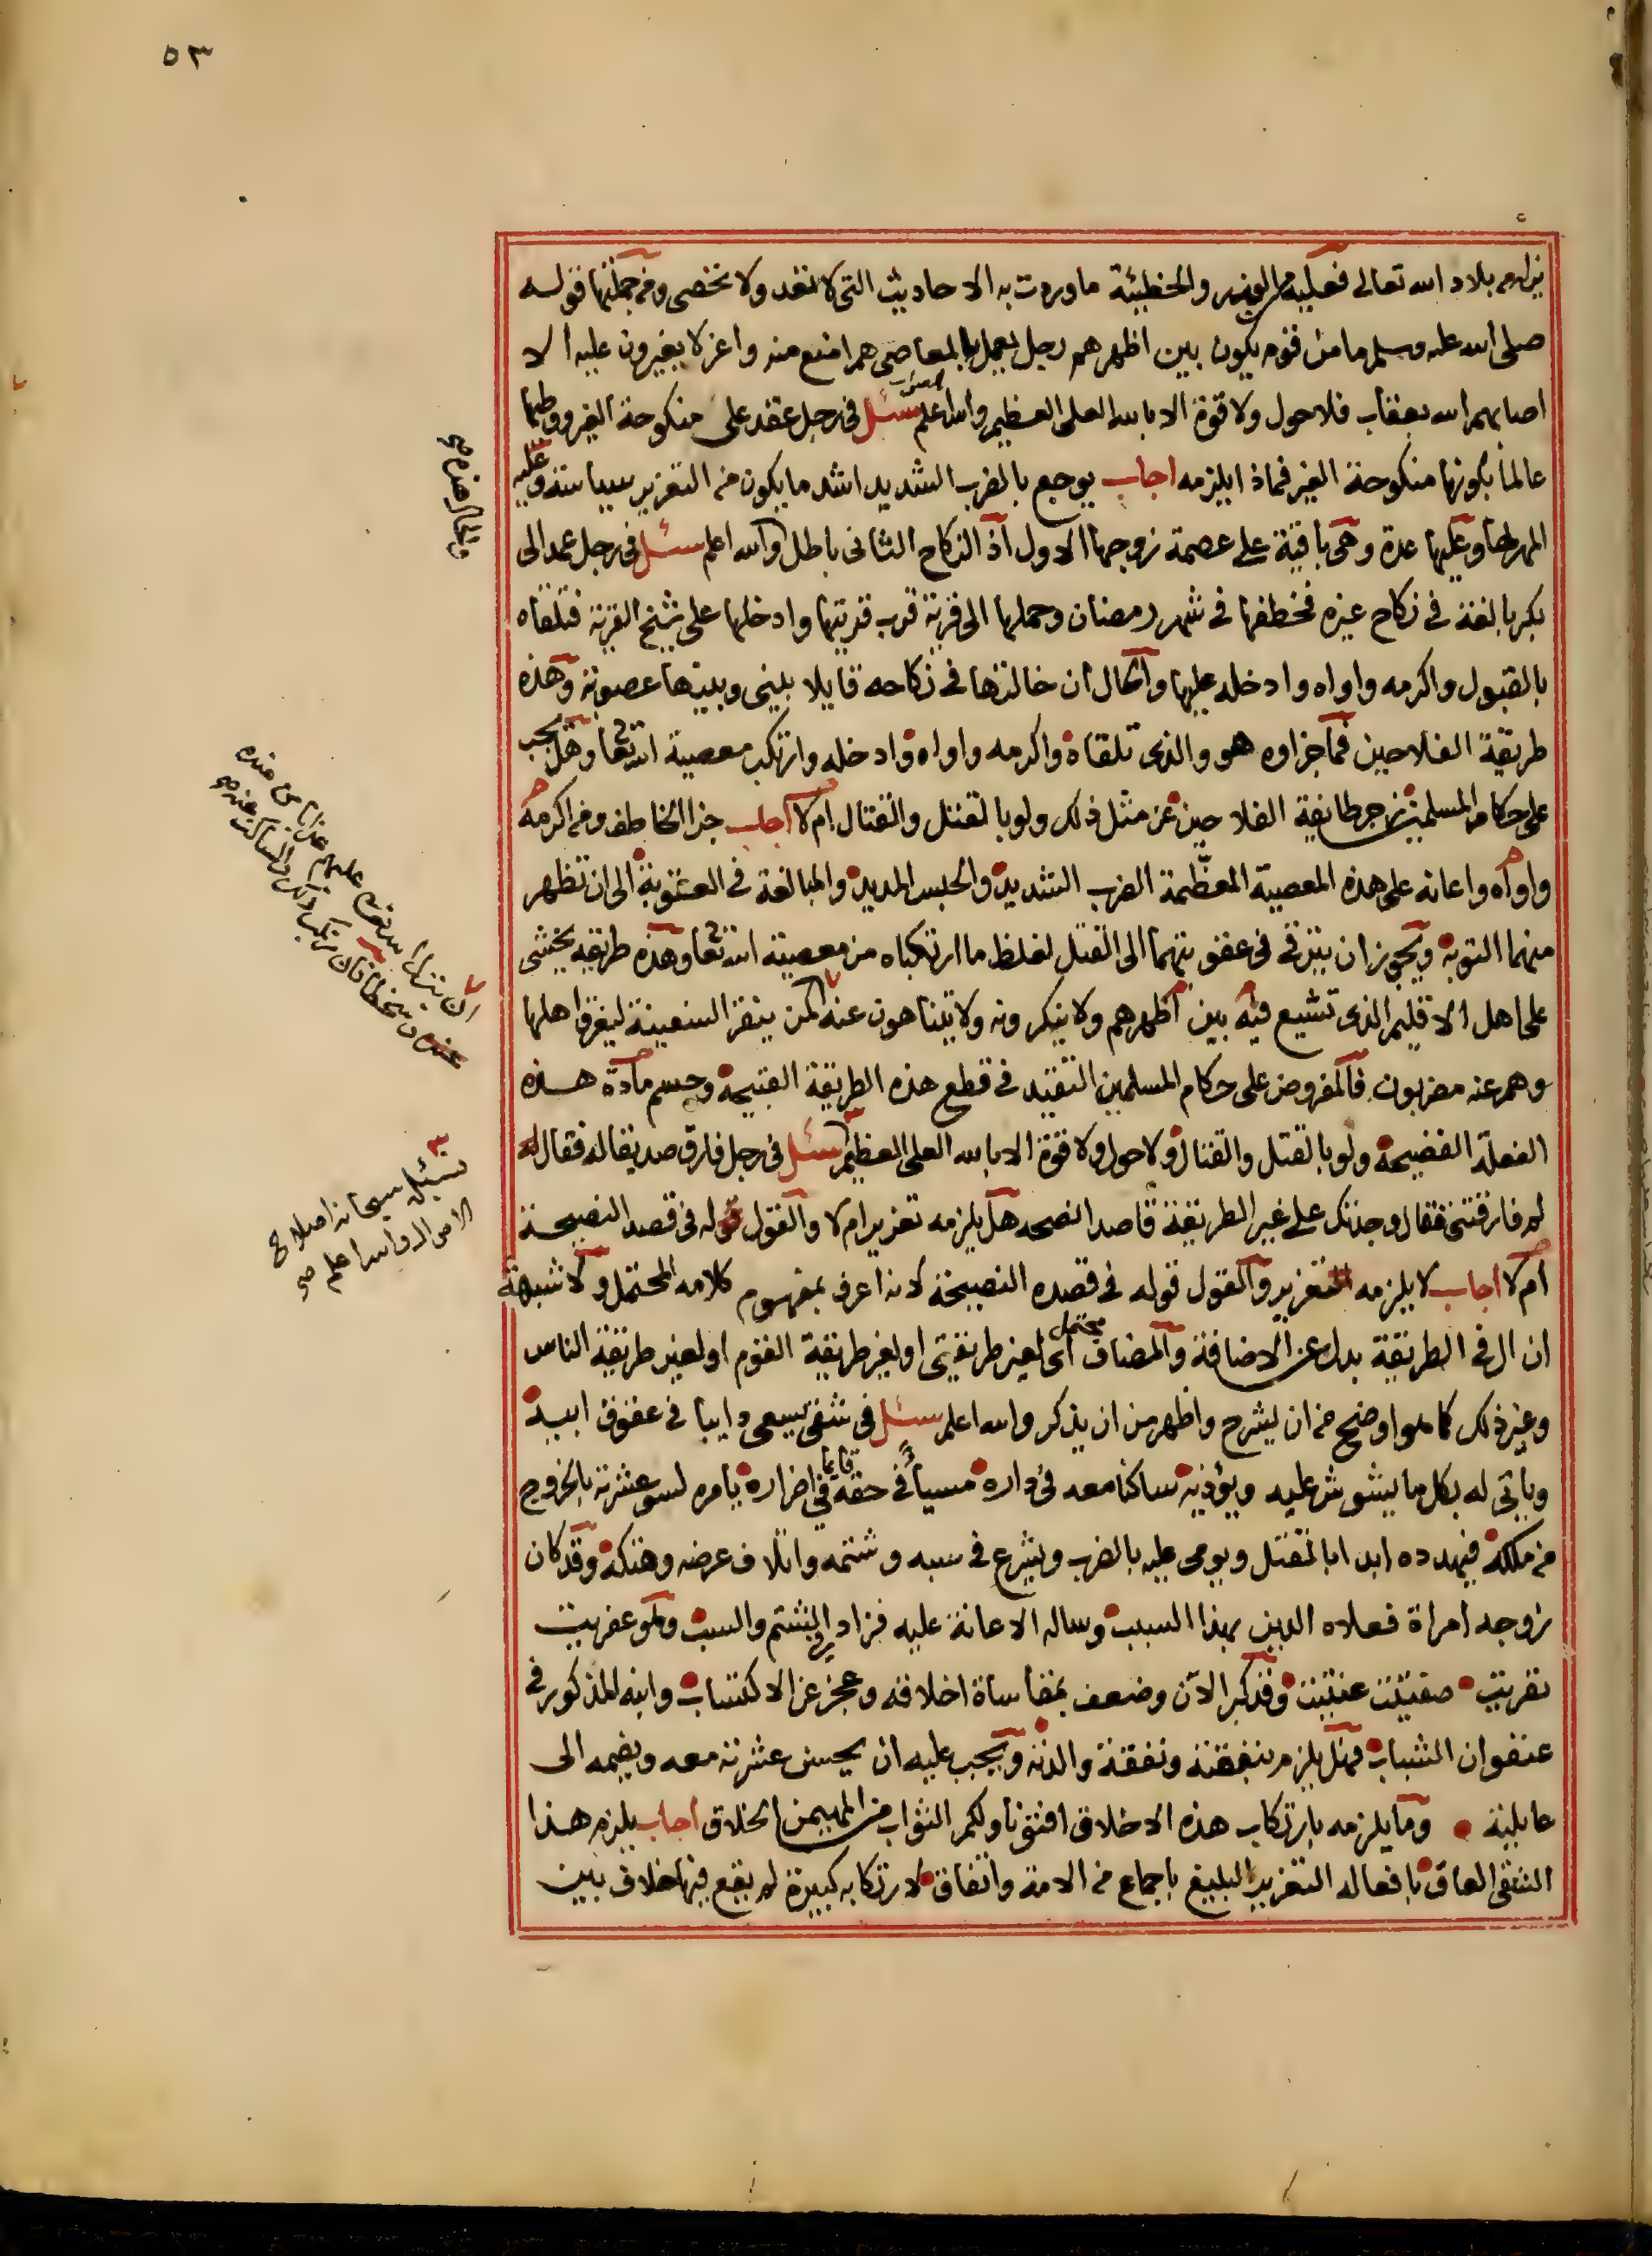 ٥٣
بلاد الله تعالى فعليه من الوزر والخطيئة ما وردت به الاحاديث التى لا تعد ولا تحصى ومن جملتها قوله
صلى الله عليه وسلم ما من قوم يكون بين اظهرهم رجل يعمل بالمعاصى هم امنع منه واعز لا يغيرون عليه الا
اصابهم الله بعقاب فلا حول ولا قوة الا بالله العلى العظيم والله اعلم سئل فى رجل عقد على منكوحة الغير ووطئها
عالما بكونها منكوحة الغير فماذا يلزمه اجاب يوجع بالضرب الشديد اشد ما يكون من التعزير سياسة وعليه
المهر لها وعليها عدة وهى باقية على عصمة زوجها الاول اذ النكاح الثانى باطل والله اعلم سئل فى رجل عمد الى
بكر بالغة فى نكاح غيره فخطفها فى شهر رمضان وحملها الى قرية قرب قريتها وادخلها على شيخ القرية فتلقاه
بالقبول واكرمه واواه وادخله عليها والحال ان خالتها فى نكاحه قايلا بينى وبينها عصوبة وهذه
طريقة الفلاحين فما جزاوه هو والذى تلقاه واكرمه واواه وادخله وارتكب معصية الله تعا وهل يجب
على حكام المسلمين زجر طايفة الفلاحين عن مثل ذلك ولو بالقتل والقتال ام لا اجاب جزا الخاطف ومن اكرمه
واواه واعانه على هذه المعصية العظيمة الضرب الشديد والحبس المديد والمبالغة فى العقوبة الى ان تظهر
منهما التوبة ويجوز ان يترقى فى عقوبتهما الى القتل لغلظ ما ارتكباه من معصية الله تعا وهذه طريقه يخشى
على اهل الاقليم الذى تشيع فيه بين اظهرهم ولا ينكرونه ولا يتناهون عنه كمن ينقر السفينة ليغرق اهلها
وهم عنه مضربون فالمفروض على حكام المسلمين التقيد فى قطع هذه الطريقة القبيحة وحسم مادة هذه
الفعلة الفضيحة ولو بالقتل والقتال ولا حول ولا قوة الا بالله العلى العظيم سئل فى رجل فارق صديقا له فقال له
لم فارقتنى فقال وجدتك على غير الطريقة قاصدا نصحه هل يلزمه تعزير ام لا والقول قوله فى قصد النصيحة
ام لا اجاب لا يلزمه التعزير والقول قوله فى قصده النصيحة لانه اعرف بمفهوم كلامه المحتمل ولا شبهة
ان ال فى الطريقة بدل عن الاضافة والمضاف محتمل اى لغير طريقتى او لغير طريقة القوم او لغير طريقة الناس
وغير ذلك كما هو اوضح من ان يشرح واظهر من ان يذكر والله اعلم سئل فى شقى يسعى دايبا فى عقوق ابيه
وياتى له بكل ما يشوش عليه ويؤذيه ساكنا معه فى داره مسيأ فى حقه قايما فى اضراره يأمره لسو عشرته بالخروج
من ملكه فيهدده ابدا بالقتل ويومى عليه بالضرب ويشرع فى سبه وشتمه واتلاف عرضه وهتكه وقد كان
زوجه امراة فعلاه الدين بهذا السبب وساله الاعانة عليه فزاد بالشتم والسب وهو عفريت
نفريت صفتيت عنتيت وقد كبر الان وضعف بمقاساة اخلاقه وعجز عن الاكتساب وابنه المذكور فى
عنفوان الشباب فهل يلزم بنفقته ونفقة والدته ويجب عليه ان يحسن عشرته معه ويضمه الى
عايلته وما يلزمه بارتكاب هذه الاخلاق افتونا ولكم الثواب من المهيمن الخلاق اجاب يلزم هذا
الشقى العاق بافعاله التعزير البليغ باجماع من الامة واتفاق لارتكابه كبيرة لم يقع فيها خلاف بين
ان ينزل الله تعم عليهم عذابا من عنده
نسئل سبحانه اصلاح
الاحوال والله اعلم صح